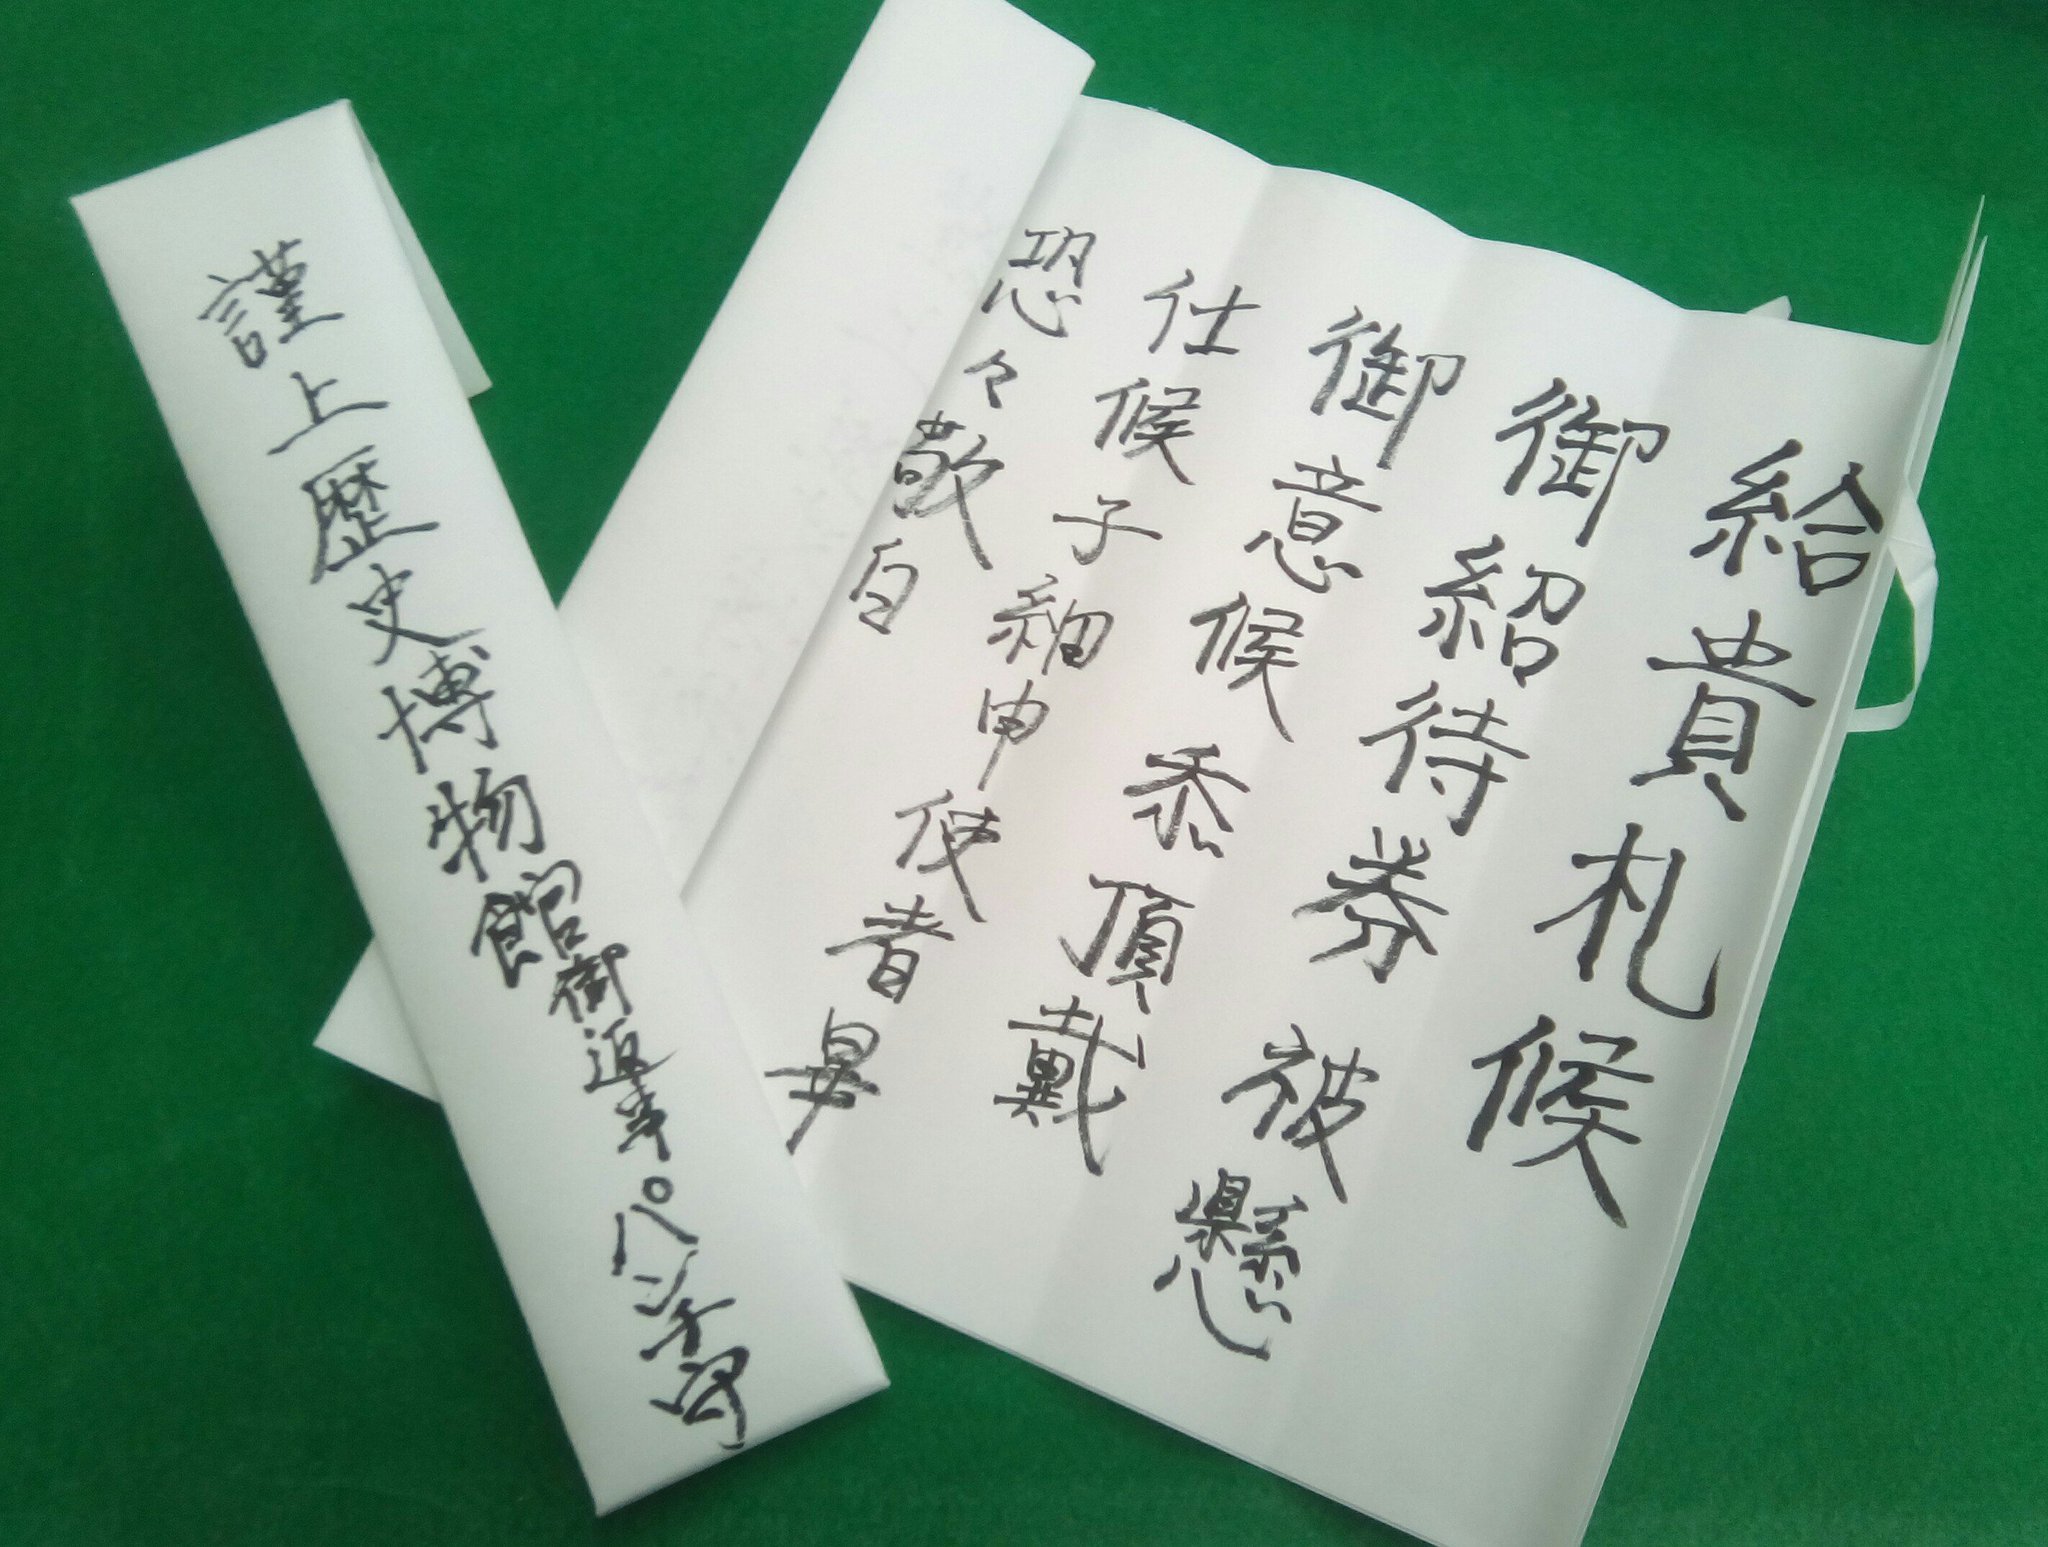 給貴札候
御紹待券被懸
御意候忝頂戴
仕候子細申使者畢
恐々敬白
謹上歴史博物館御返事パンチ守